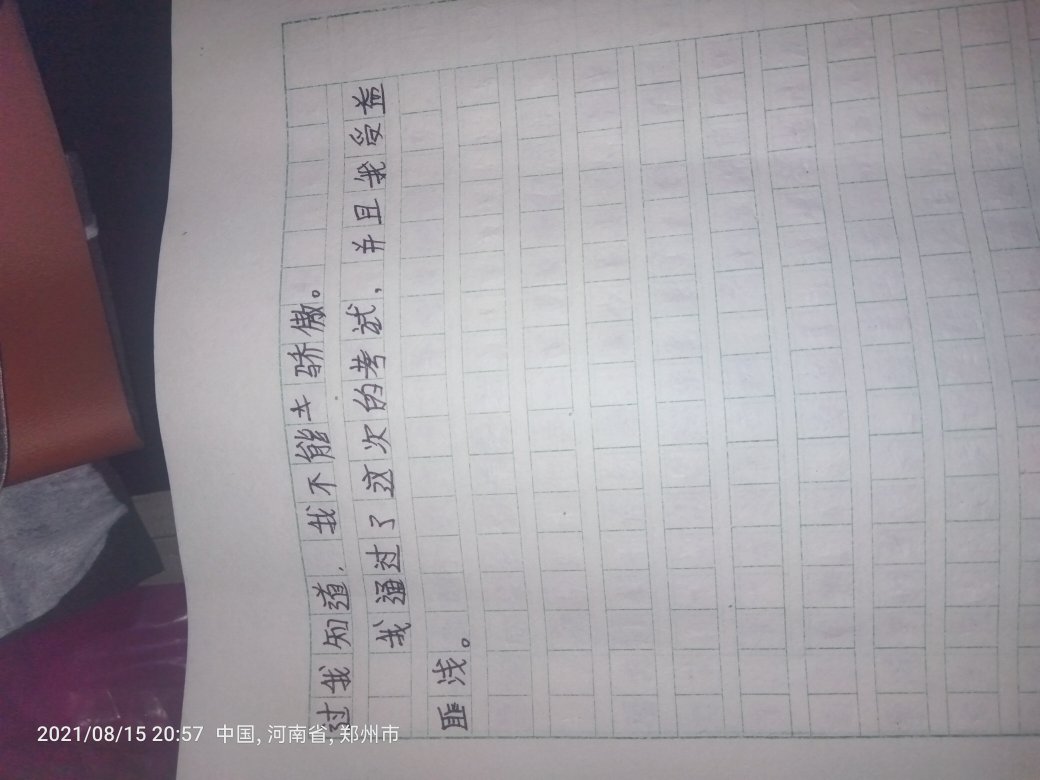 过我知道，我不能去骄傲。
我通过了这次的考试，并且我受益
匪浅。
2021/08/15 20:57 中国, 河南省, 郑州市